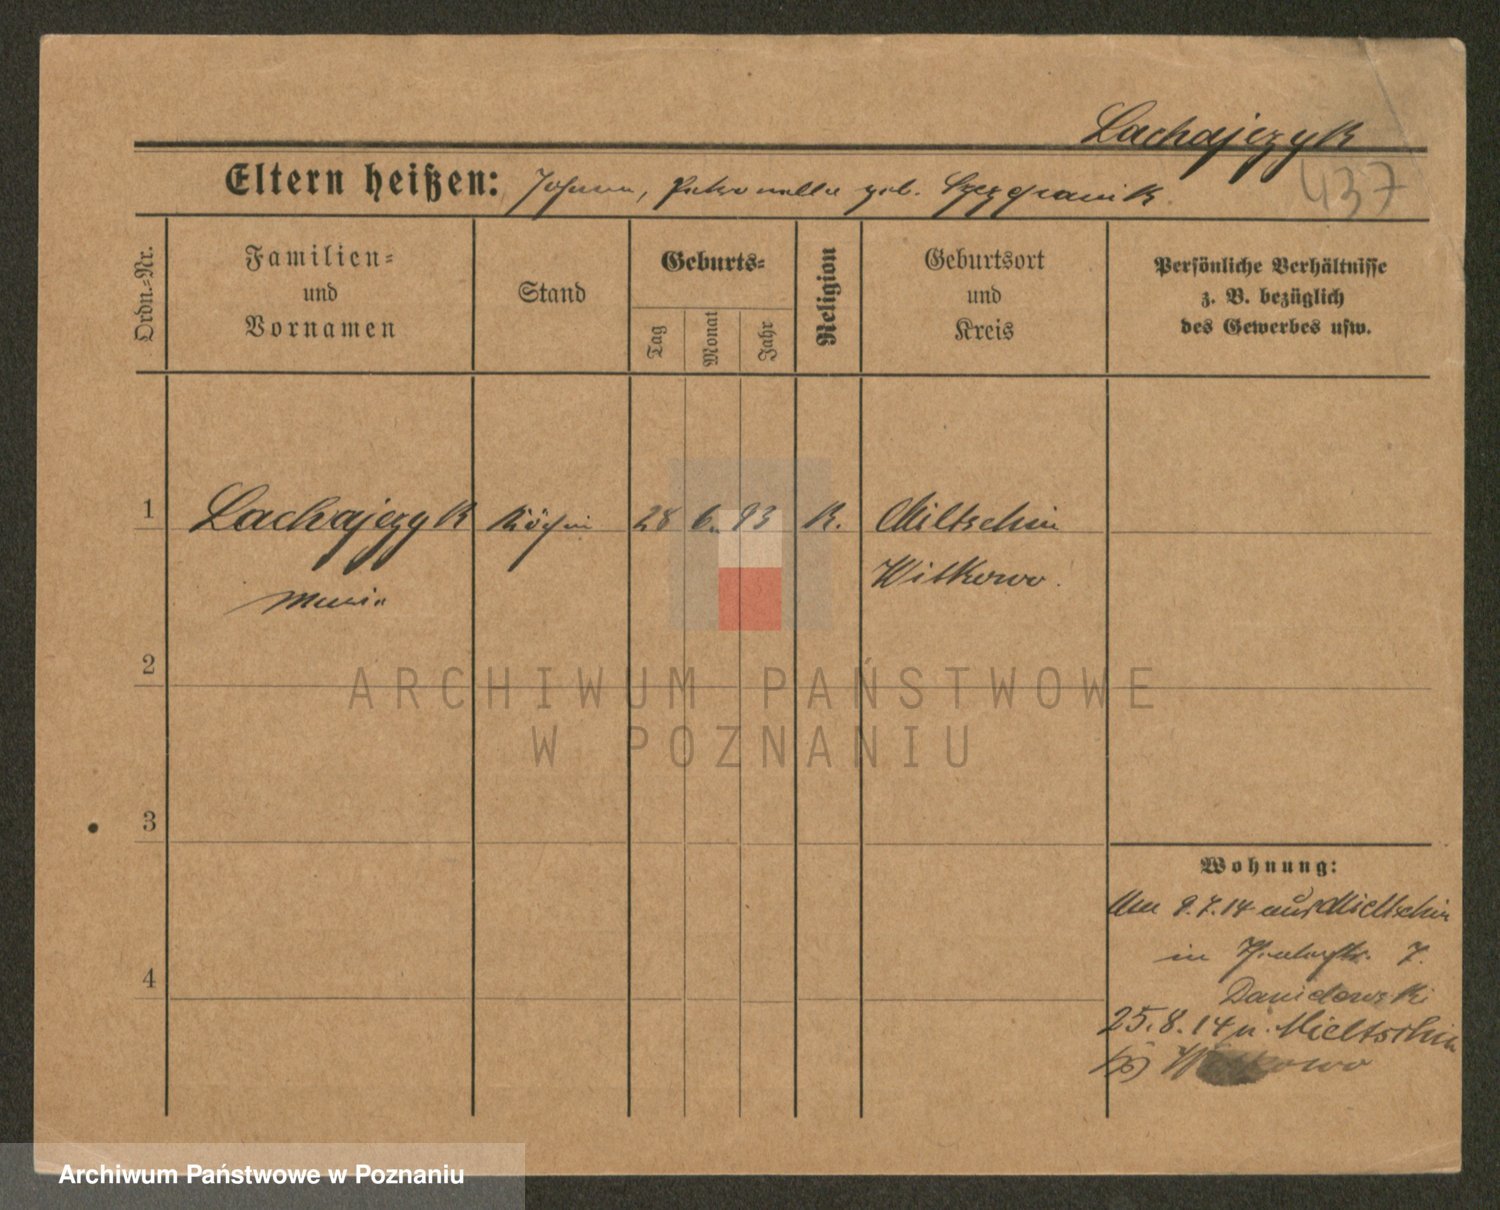 Lachajczyk
437
Eltern heißen: Johann, Petronella geb.
Ordn.-Nr.
Familien-
und
Vornamen
Stand
Geburts-
Tag
Monat
Jahr
Religion
Geburtsort
und
Kreis
Persönliche Verhältnisse
z. B. bezüglich
des Gewerbes usw.
1 Lachajczyk Köchin 28 6. 93 K. Miltschin
Witkowo.
Maria
2
ARCHIWUM PAŃSTWOWE
W POZNANIU
3
Wohnung:
Am 9.7.14 aus Mieltschin
in 7.
Danielowski
4
25.8.14 n. Mieltschin
Witkowo
Archiwum Państwowe w Poznaniu